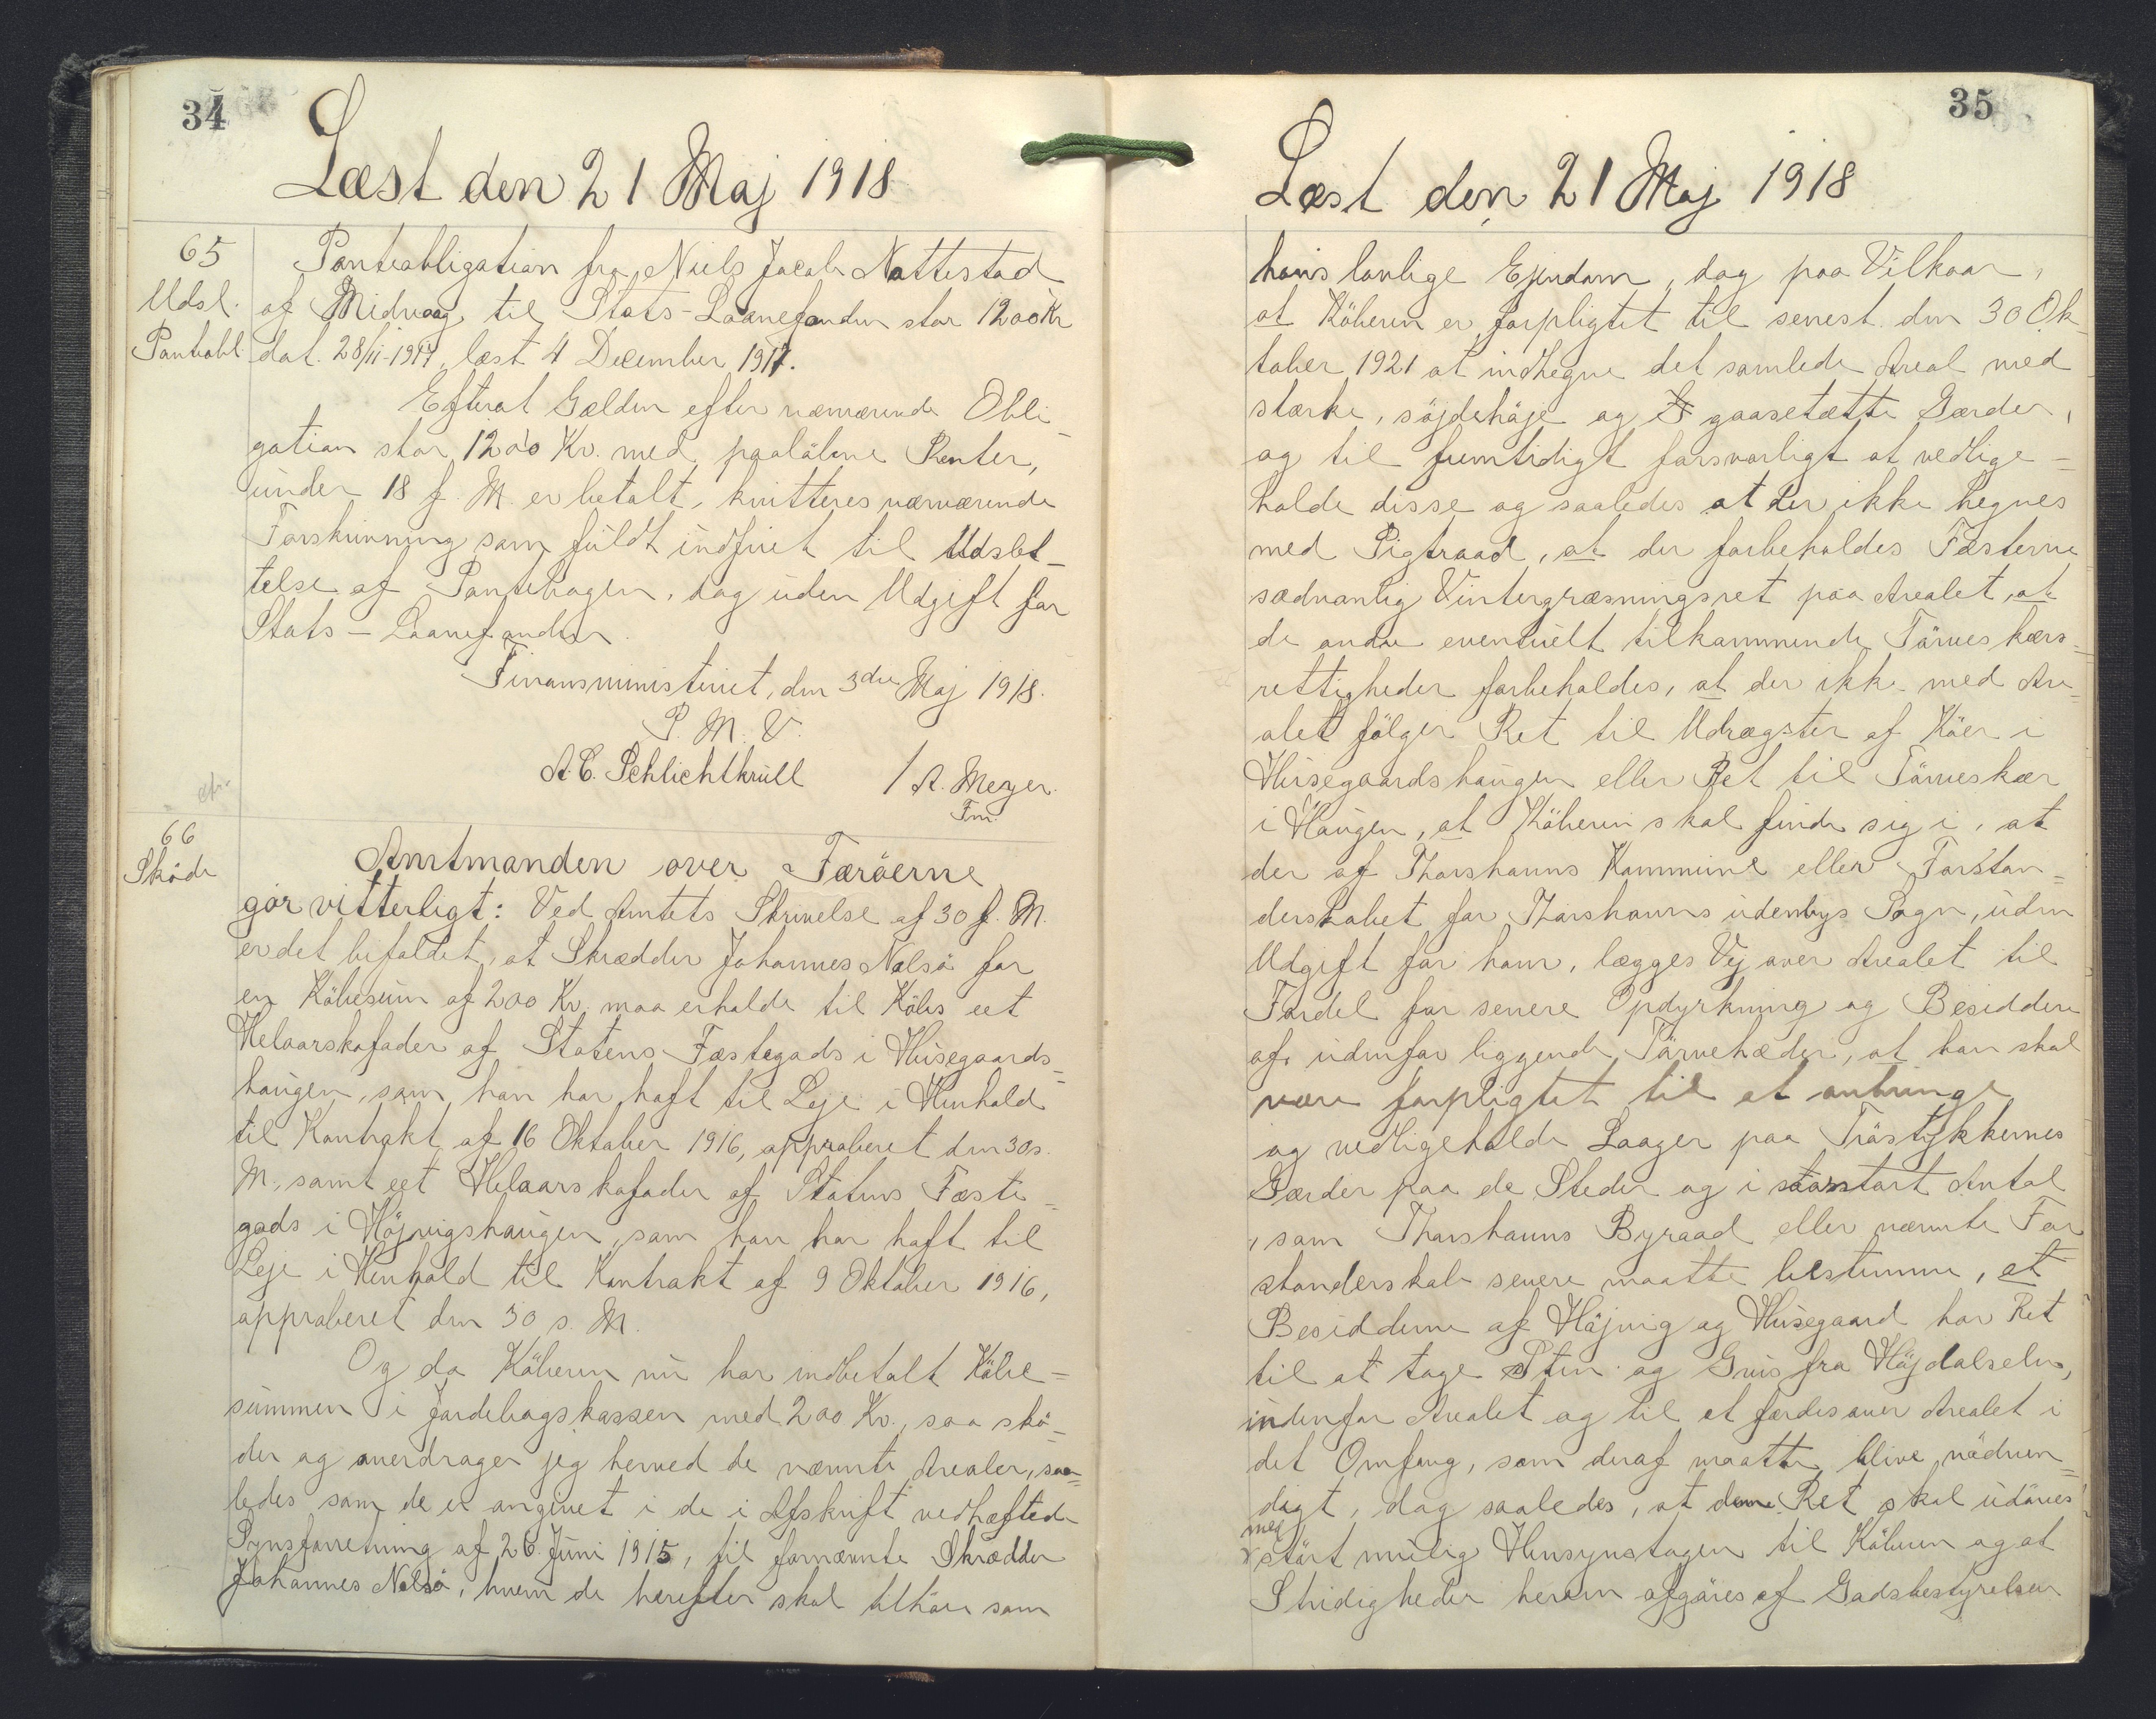 34
Læst den 21 Maj 1918
65
Udsl.
Panteobl.
Panteobligation fra Niels Jacob Nattestad
af Midvaag til Stats-Laanefonden stor 1200 Kr
dat. 28/11-1917, læst 4 December 1917.
Efterat Gælden efter nærværende Obli-
gation stor 1200 Kr. med paaløbne Renter,
under 18 f. M. er betalt, kvitteres nærværende
Forskrivning som fuldt indfriet til Udslet-
telse af Pantebogen, dog uden Udgift for
Stats-Laanefonden.
Finansministeriet, den 3die Maj 1918.
P. M. V.
A. C. Schlichtkrull / A. Meyer.
Fm.
66
Skøde
Amtmanden over Færöerne
gör vitterligt: Ved Amtets Skrivelse af 30 f. M.
er det bifaldet, at Skrædder Johannes Nolsö for
en Köbesum af 200 Kr. maa erholde til Köbs eet
Helaarskofoder af Statens Fæstegods i Husegaards-
haugen, som han har haft til Leje i Henhold
til Kontrakt af 16 Oktober 1916, approberet den 30 s.
M., samt eet Helaarskofoder af Statens Fæste-
gods i Höjvigshaugen, som han har haft til
Leje i Henhold til Kontrakt af 9 Oktober 1916,
approberet den 30 s. M.
Og da Köberen nu har indbetalt Köbe-
summen i Jordebogskassen med 200 Kr., saa skö-
der og overdrager jeg herved de nævnte Arealer, saa-
ledes som de er angivet i de i Afskrift vedhæftede
Synsforretning af 26. Juni 1915, til fornævnte Skrædder
Johannes Nolsö, hvem de herefter skal tilhöre som
35
Læst den 21 Maj 1918
hans lovlige Ejendom, dog paa Vilkaar,
at Köberen er forpligtet til senest den 30 Ok-
tober 1921 at indhegne det samlede Areal med
stærke, söjdehöje og gaasetætte Gærder,
og til fremtidigt forsvarligt at vedlige-
holde disse og saaledes at der ikke hegnes
med Pigtraad, at der forbeholdes Fæsterne
sædvanlig Vintergræsningsret paa Arealet, at
de andre eventuelt tilkommende Törveskærs-
rettigheder forbeholdes, at der ikke med Are-
alet fölger Ret til Udrægster af Köer i
Husegaardshaugen eller Ret til Törveskær
i Haugen, at Köberen skal finde sig i, at
der af Thorshavns Kommune eller Forstan-
derskabet for Thorshavns udenbys Sogn, uden
Udgift for ham, lægges Vej over Arealet til
Fordel for senere Opdyrkning og Besiddere
af udenfor liggende Törvehæder, at han skal
være forpligtet til at anbringe
og vedligeholde Laager paa Tröstykkernes
Gærder paa de Steder og i saa stort Antal
, som Thorshavns Byraad eller nævnte For
standerskab senere maatte bestemme, at
Besidderne af Höjvig og Husegaard har Ret
til at tage Sten og Grus fra Höjdalselv,
indenfor Arealet og til at færdes over Arealet i
det Omfang, som deraf maatte blive nödven-
digt, dog saaledes, at denne Ret skal udöves
med
störst mulig Hensynstagen til Köberen og at
Stridigheder herom afgöres af Godsbestyrelsen